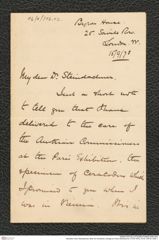 Byron House
25 Savile Row
London W.
15/9/78
My dear Dr. Steindachner,
Such a short note
to tell you that I have
delivered to the care of
the Austrian Commissioners
at the Paris Exhibition, the
specimen of Ceratodus which
I promised to you when I
was in Vienna.